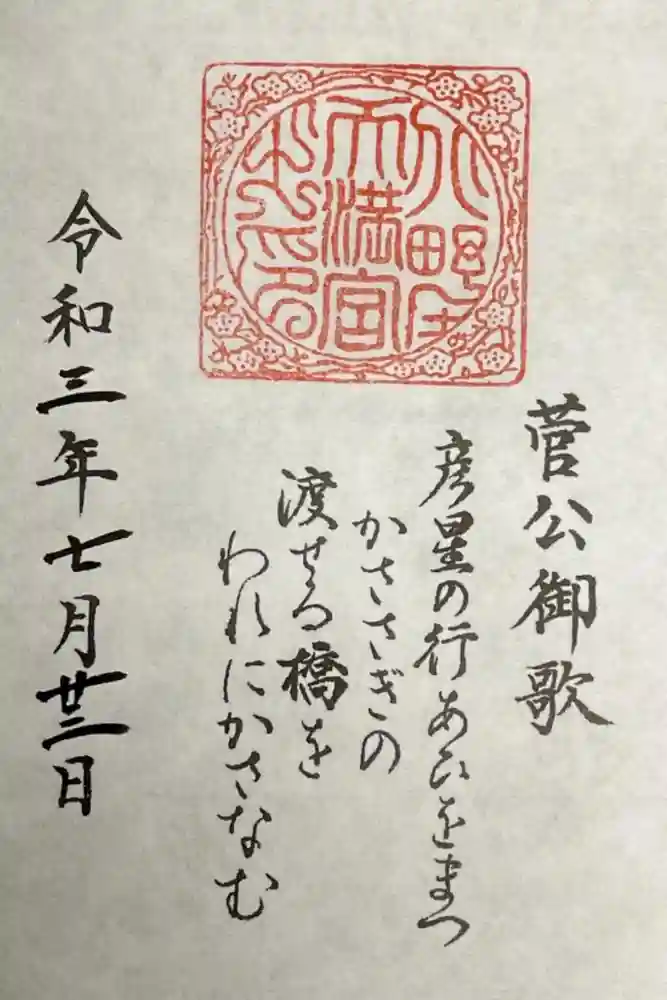 野
天満宮
之印
菅公御歌
彦星の行あひをまつ
かささぎの
渡せる橋を
われにかさなむ
令和三年七月廿三日